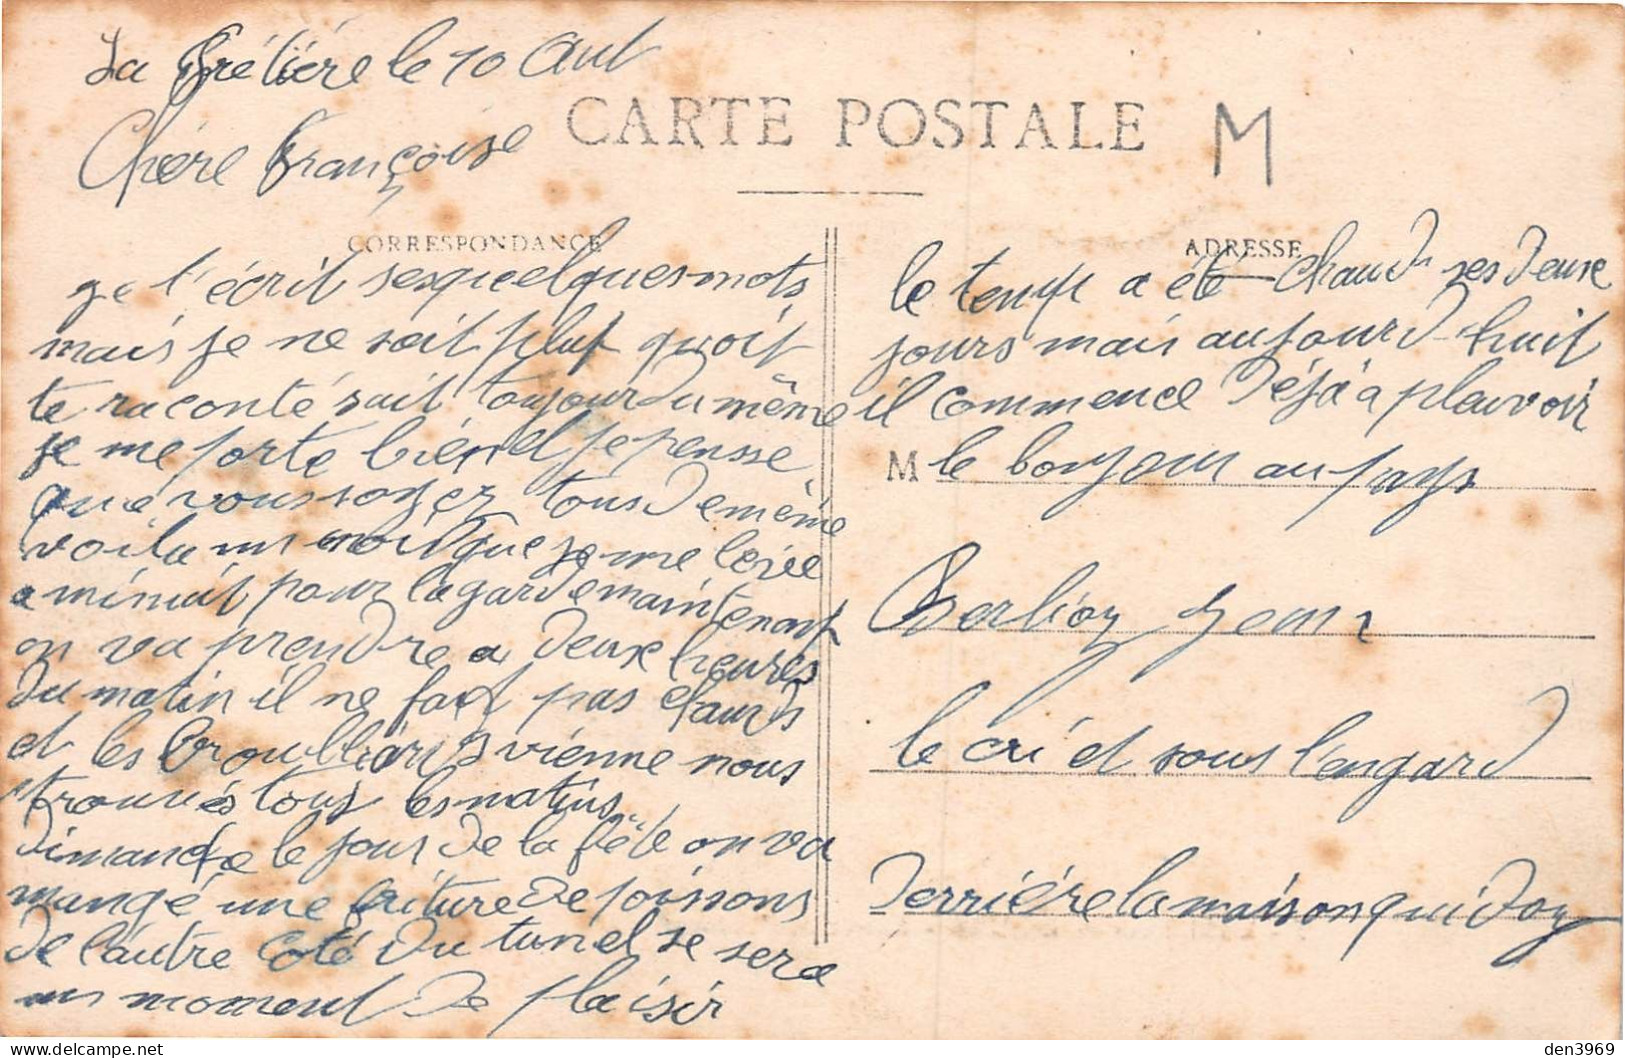 La Frétière le 10 Aut
CARTE POSTALE
M
Chère Françoise
CORRESPONDANCE
ge t'écrit sesquelquesmots
mais je ne sait pluf quoit
te raconté sait toujour du même
je me porte bien et je pensse
que vous soyez tous de même
voila un mois que je me levée
a minuit pour la garde maintenant
on va prendre a deux heures
du matin il ne fait pas chaud
et les brouillards vienne nous
trouvés tous les matins
Dimanche le jour de la fête on va
mangé une friture de poissons
de l'autre coté du tunel se sera
un moment de plaisir
ADRESSE
le temps a été chaud ses deux
jours mais aujourd-huit
il commence déja a pleuvoir
M le bonjour au pays
Berlioz Jean
le cri et sous l'engard
derrière la maison qui
den3969